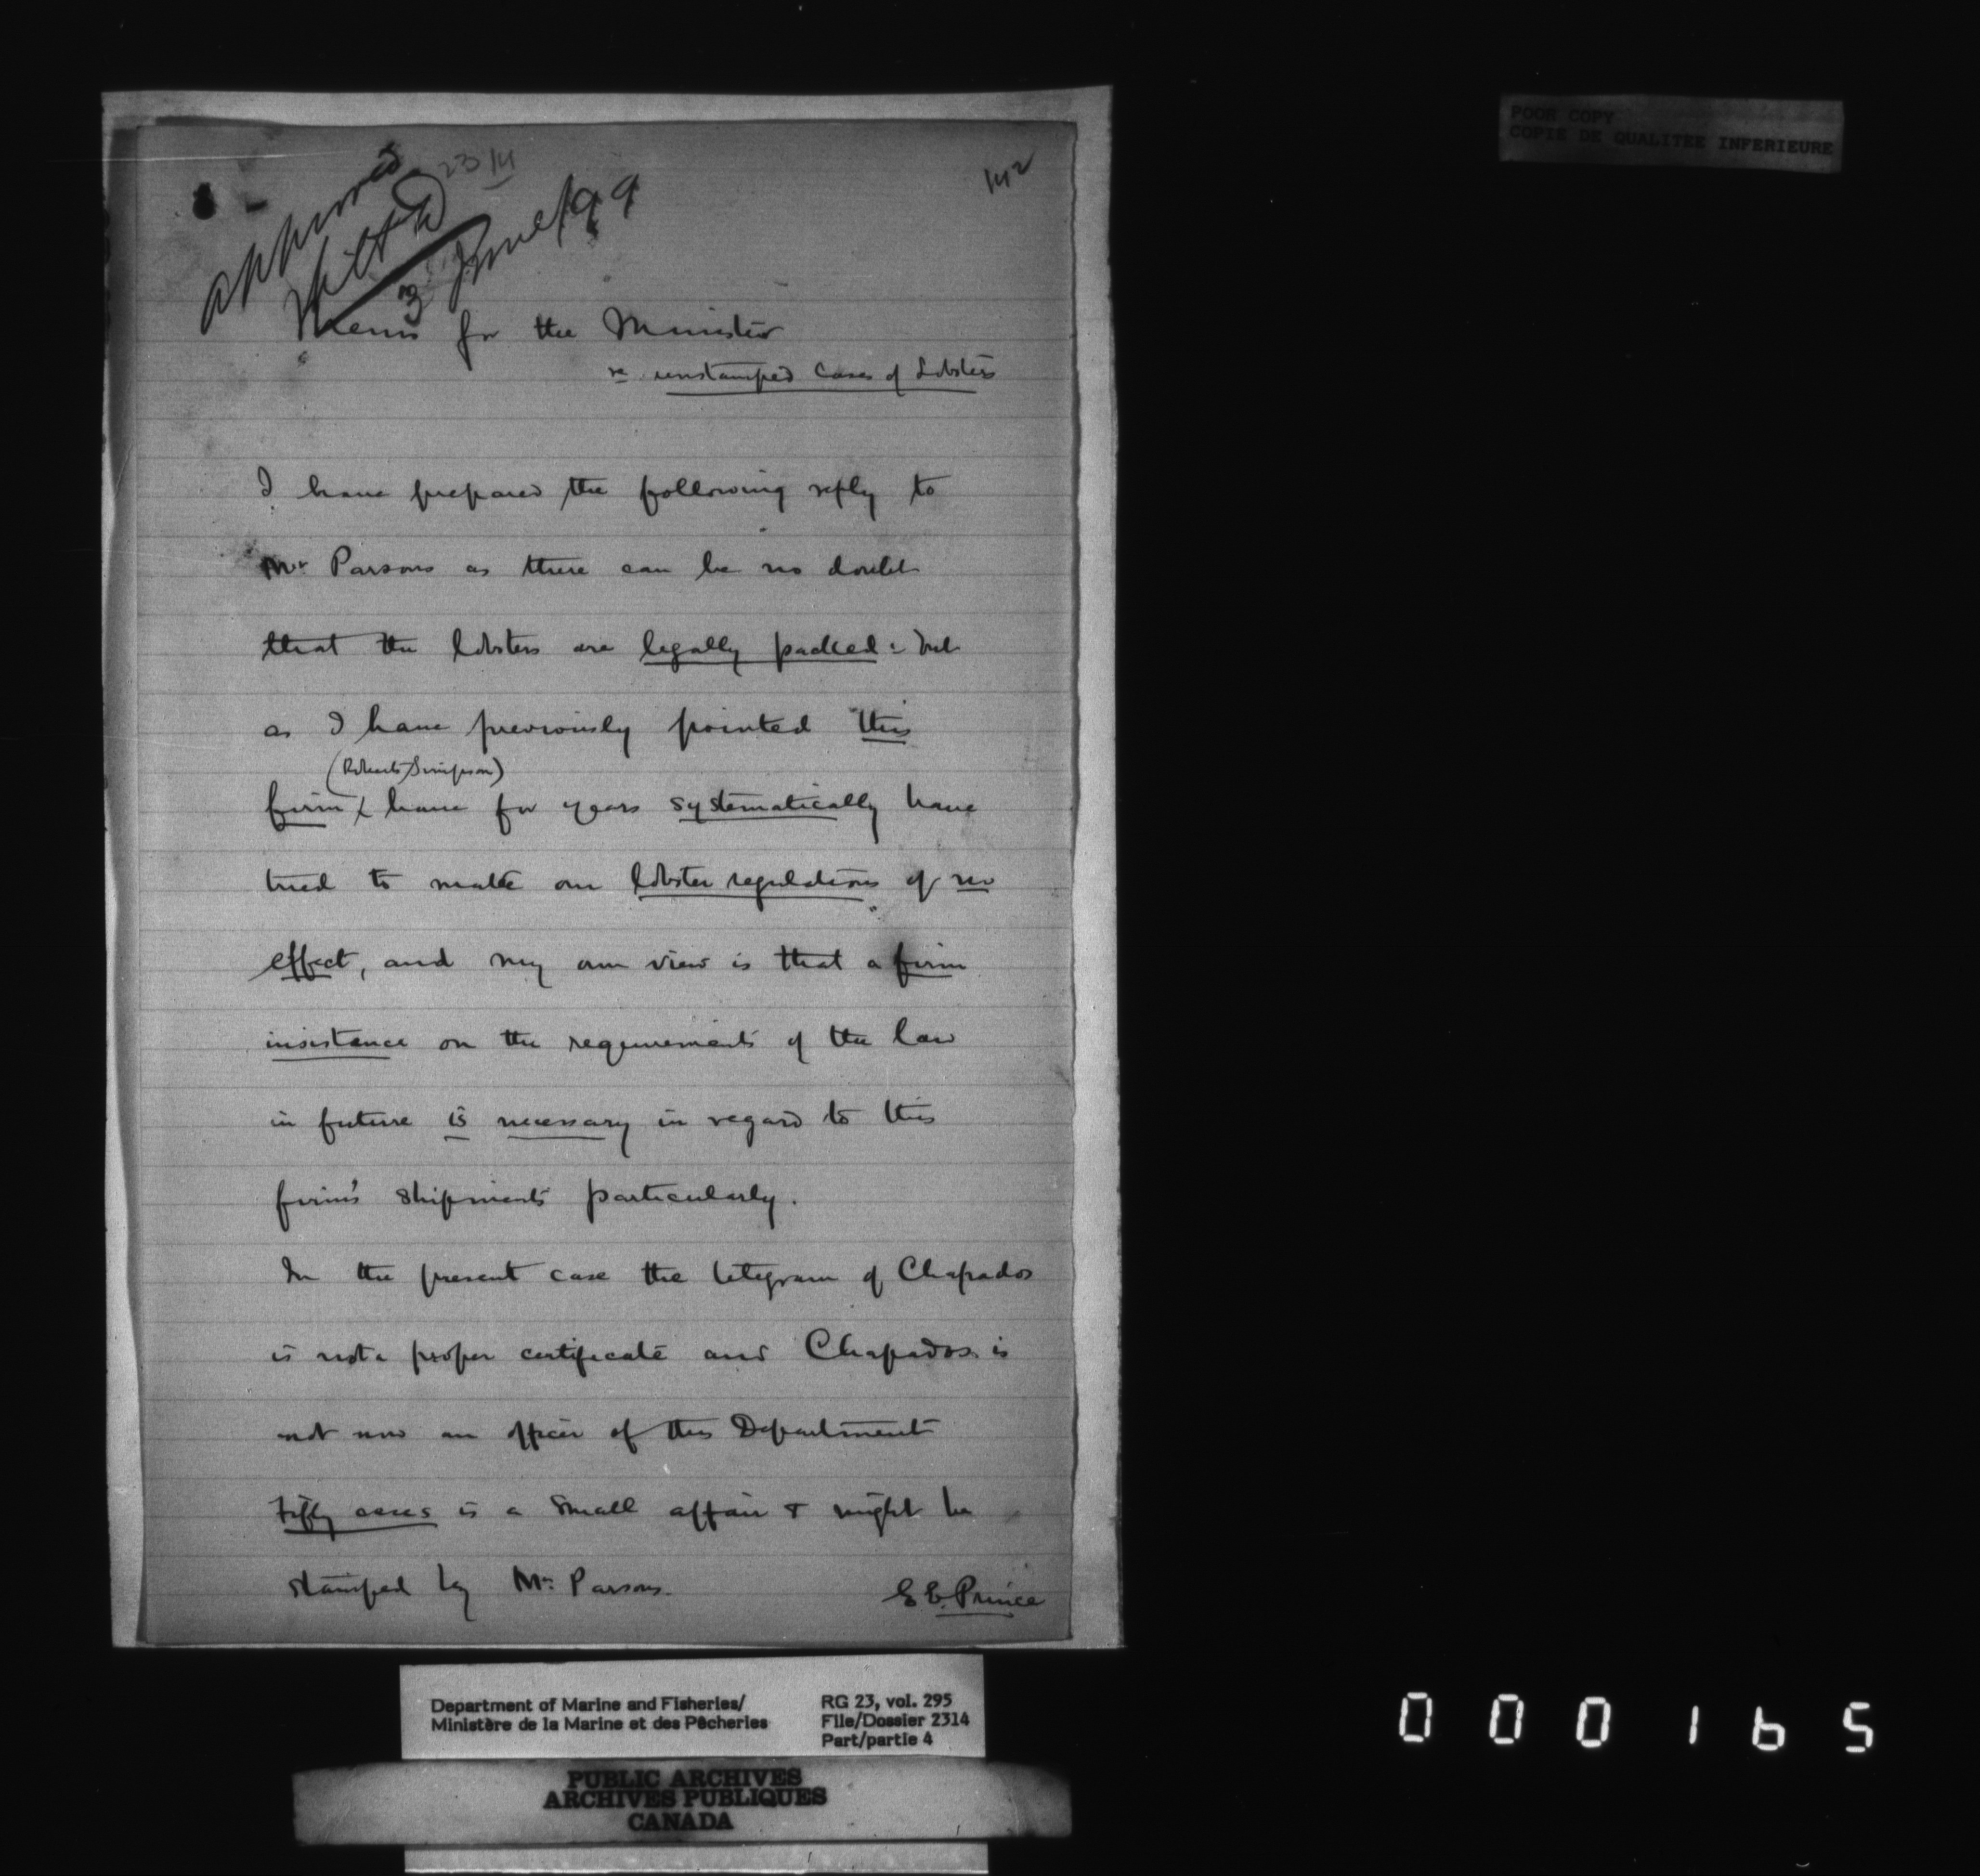 approved
23/4
142
3 June/99
Memo for the Minister
re unstamped Cases of Lobsters
I have prepared the following reply to
Mr Parsons as there can be no doubt
that the lobsters are legally packed: but
as I have previously pointed this
(Roberts Simpson)
firm have for years systematically have
tried to make our lobster regulations of no
effect, and my own view is that a firm
insistance on the requirements of the law
in future is necessary in regard to this
firm's shipments particularly.
In the present case the telegram of Chapados
is not a proper certificate and Chapados is
not now an officer of this Department
Fifty cases is a small affair & might be
stamped by Mr Parsons.
E E. Prince
POOR COPY
COPIE DE QUALITEE INFERIEURE
Department of Marine and Fisheries/
Ministère de la Marine et des Pêcheries
RG 23, vol. 295
File/Dossier 2314
Part/partie 4
PUBLIC ARCHIVES
ARCHIVES PUBLIQUES
CANADA
000165